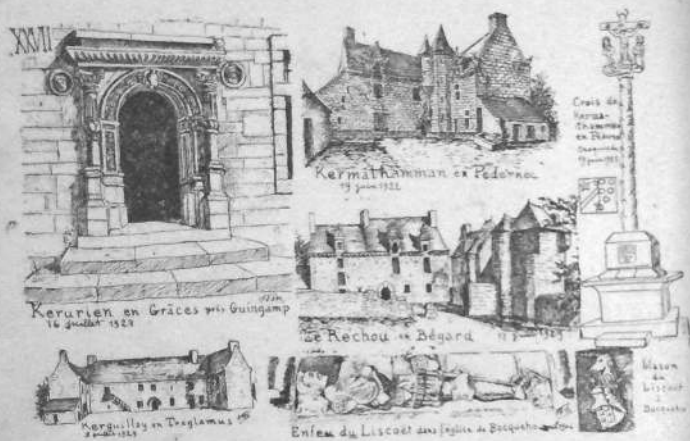 XXVII
Kerurien en Grâces près Guingamp
16 Juillet 1929
Kermathamman en Pédernec
19 juin 1922
Croix de
Kerma-
thamman
en Pédernec
Le Rechou en Bégard
Kerguillay en Treglamus
Enfeu du Liscoët dans l'église de Bocqueho
Blason
du
Liscoët
à
Bocqueho